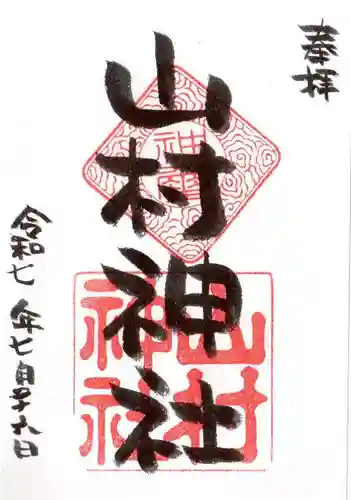 奉拝
山村神社
令和七年七月二十六日
山村神社